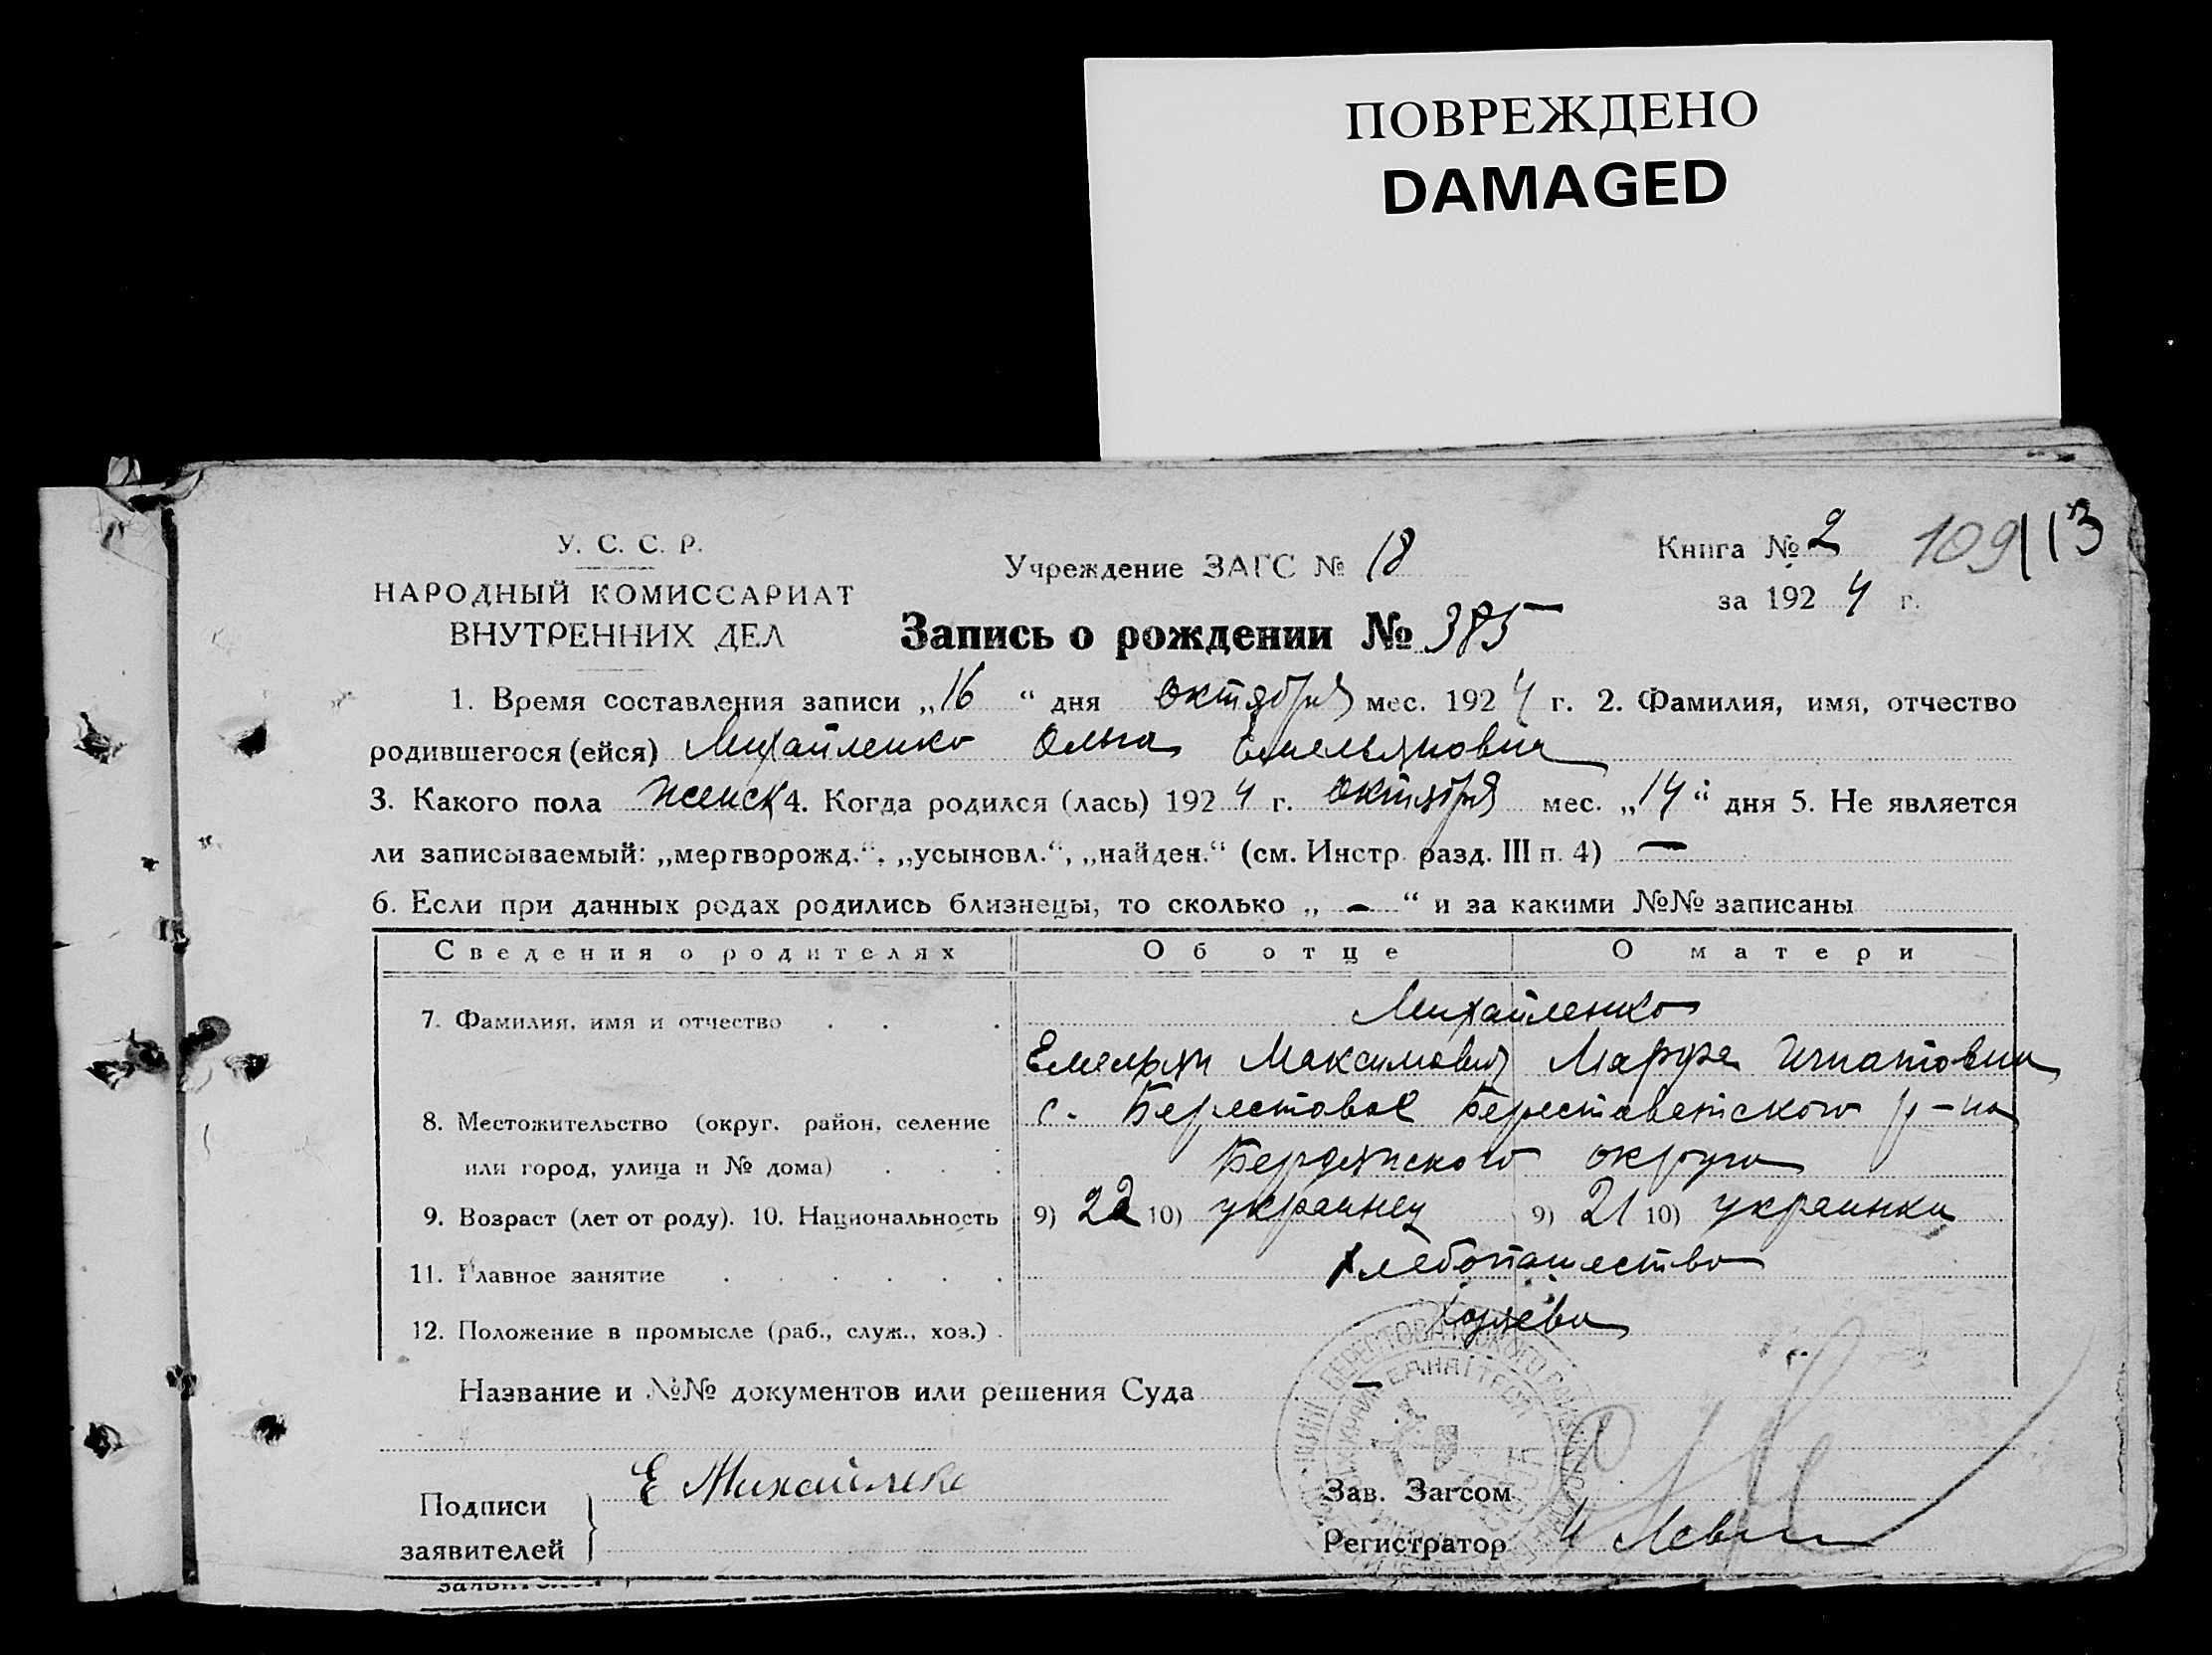 ПОВРЕЖДЕНО
DAMAGED
У. С. С. Р.
НАРОДНЫЙ КОМИССАРИАТ
ВНУТРЕННИХ ДЕЛ
Учреждение ЗАГС № 18
Книга № 2
109 113
за 1924 г.
Запись о рождении № 385
1. Время составления записи „16“ дня октября мес. 1924 г. 2. Фамилия, имя, отчество
родившегося (ейся) Михайленко Ольга Емельяновна
3. Какого пола женск 4. Когда родился (лась) 1924 г. октября мес. „14“ дня 5. Не является
ли записываемый: „мертворожд.“, „усыновл.“, „найден.“ (см. Инстр. разд. III п. 4) —
6. Если при данных родах родились близнецы, то сколько „—“ и за какими №№ записаны
Сведения о родителях Об отце О матери
7. Фамилия, имя и отчество . . . Михайленко
Емельян Максимович Марфа Игнатовна
8. Местожительство (округ, район, селение с. Берестовое Берестоветского р-на
или город, улица и № дома) . . . Бердянского округа
9. Возраст (лет от роду). 10. Национальность 9) 22 10) украинец 9) 21 10) украинка
11. Главное занятие . . . . . . хлебопашество
12. Положение в промысле (раб., служ., хоз.) . хозяева
Название и №№ документов или решения Суда —
Подписи
заявителей
Е Михайленко
Зав. Загсом
Регистратор